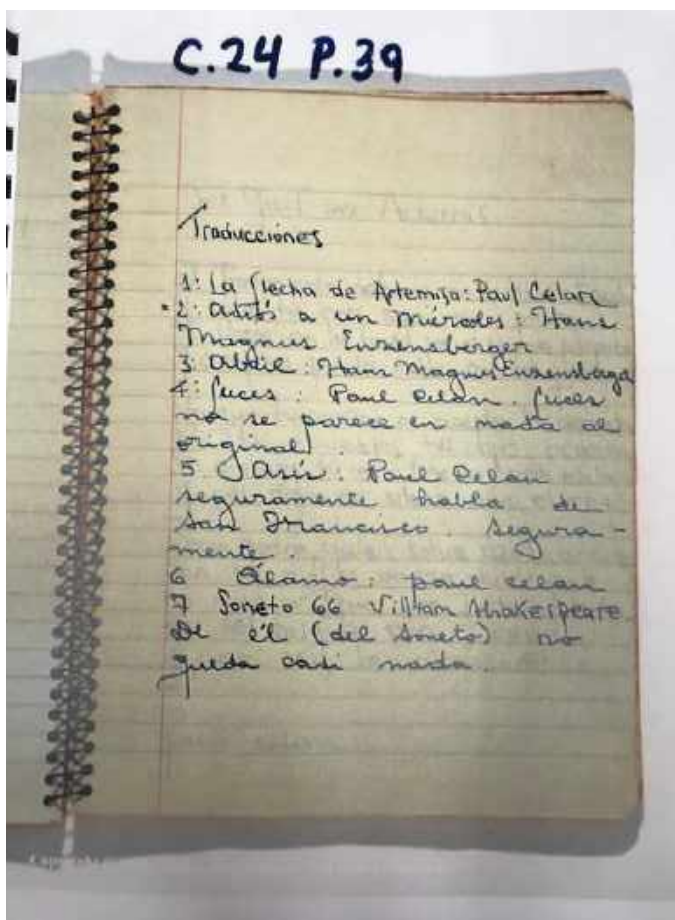 C.24 P.39
Traducciones
1: La flecha de Artemisa: Paul Celan
2: Adiós a un Miércoles: Hans
Magnus Enzensberger
3: Abril: Hans Magnus Enzensberger
4: Luces: Paul Celan. Luces
no se parece en nada al
original.
5. Asís: Paul Celan
seguramente habla de
San Francisco. Segura-
mente.
6 Álamo: paul celan
7 Soneto 66 William Shakespeare
De él (del soneto) no
queda casi nada.